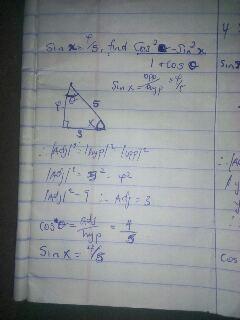 Sin x = 4/5, find Cos²θ - Sin²x
1 + Cos θ
Sin x = opp/hyp = 4/5
θ
4
5
x
3
∴ |Adj|² = |hyp|² |opp|²
|Adj|² = 5² - 4²
|Adj|² - 9 ∴ Adj = 3
Cos θ = adj/hyp = 4/5
Sin X = 4/5
4
Sin
Cos